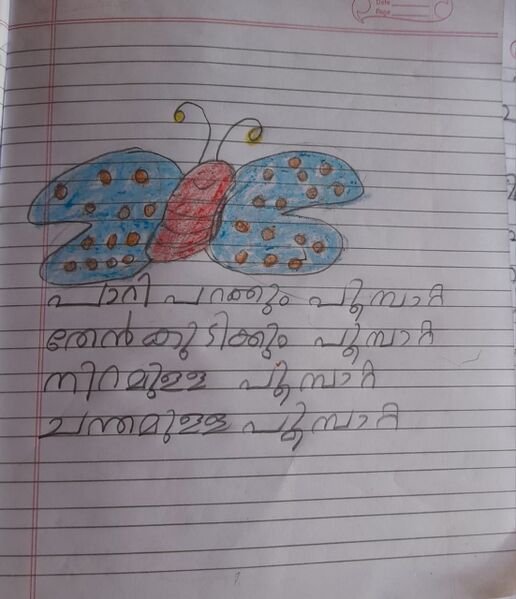 Date
Page
പാറി പറക്കും പൂമ്പാറ്റ
തേൻ കുടിക്കും പൂമ്പാറ്റ
നിറമുള്ള പൂമ്പാറ്റ
ചന്തമുള്ള പൂമ്പാറ്റ